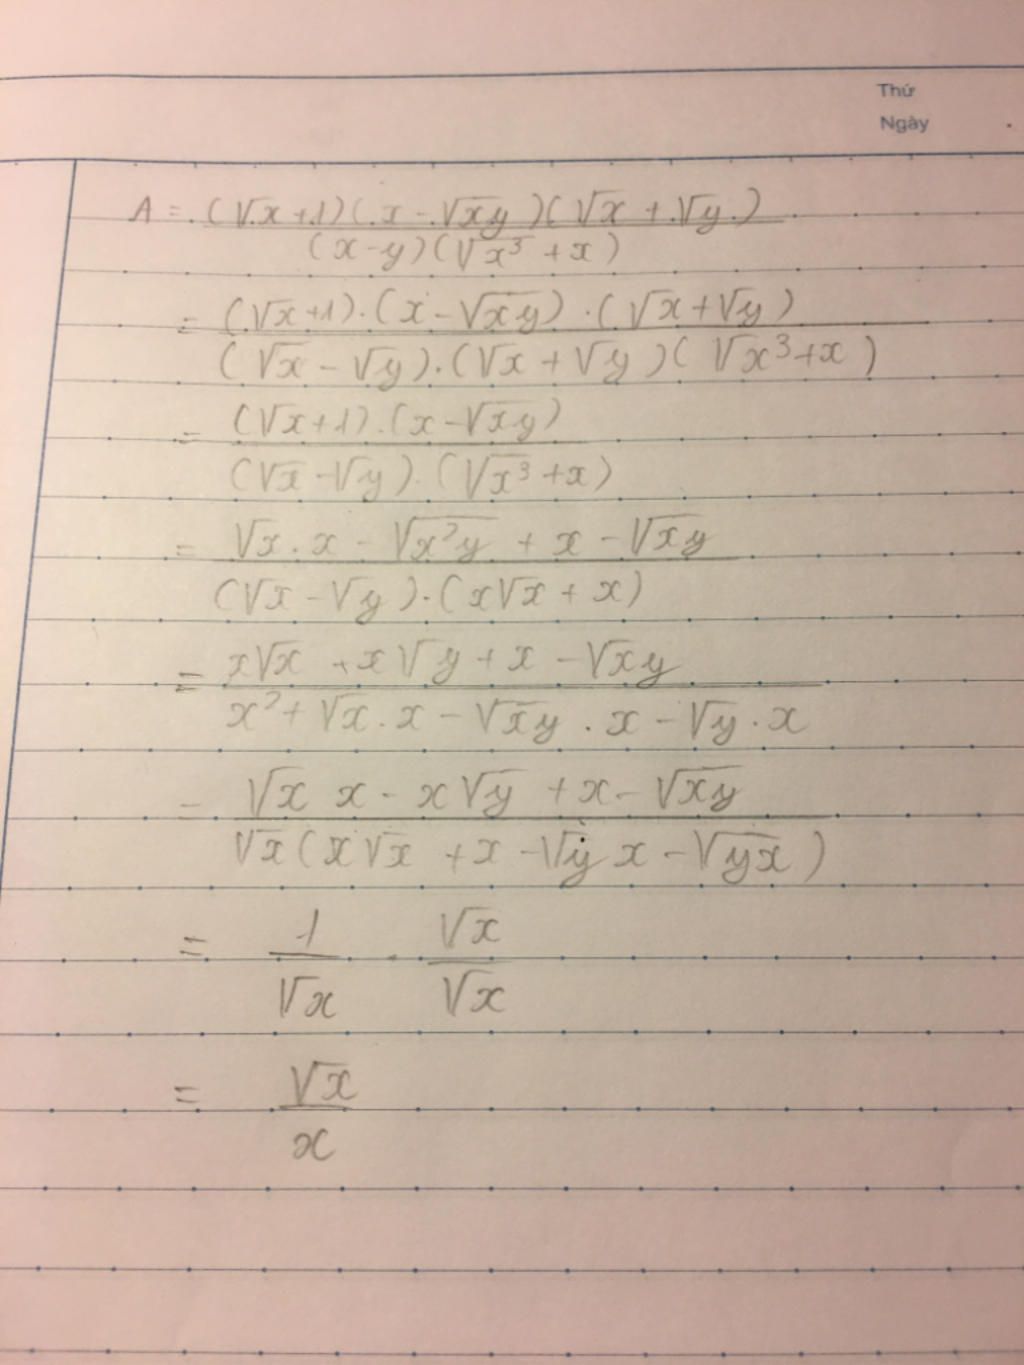 Thứ
Ngày
A = (√x + 1)(x - √xy)(√x + √y)
(x - y)(√x³ + x)
= (√x + 1).(x - √xy).(√x + √y)
(√x - √y).(√x + √y)(√x³ + x)
= (√x + 1).(x - √xy)
(√x - √y).(√x³ + x)
= √x.x - √x²y + x - √xy
(√x - √y).(x√x + x)
= x√x + x√y + x - √xy
x² + √x.x - √xy.x - √y.x
= √x x - x√y + x - √xy
√x(x√x + x - √y x - √yx)
= 1 . √x
√x √x
= √x
x